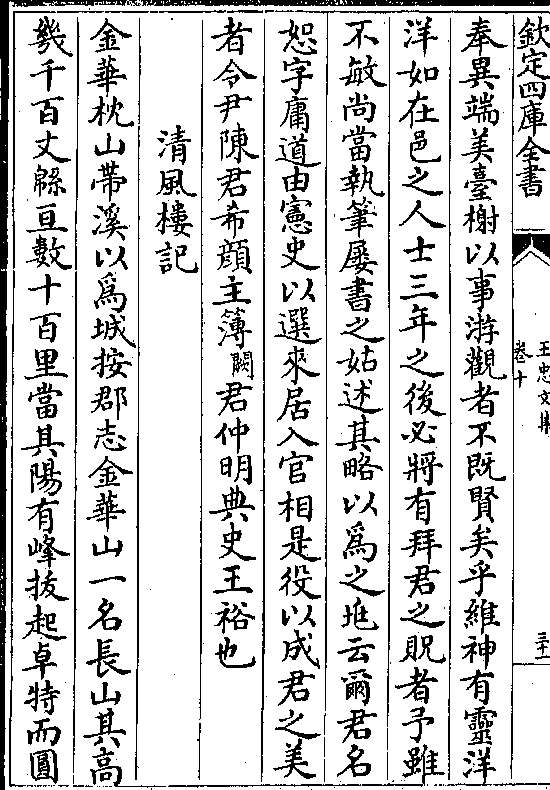 欽定四庫全書
王忠文集
卷十
三十一
奉異端美臺榭以事游觀者不既賢矣乎維神有靈洋
洋如在邑之人士三年之後必將有拜君之貺者予雖
不敏尚當執筆屢書之姑述其略以為之𠱾云爾君名
恕字庸道由憲史以選來居入官相是役以成君之美
者令尹陳君希顔主簿闕君仲明典史王裕也
清風樓記
金華枕山帶溪以為城按郡志金華山一名長山其高
幾千百丈緜亘數十百里當其陽有峰拔起卓特而圓